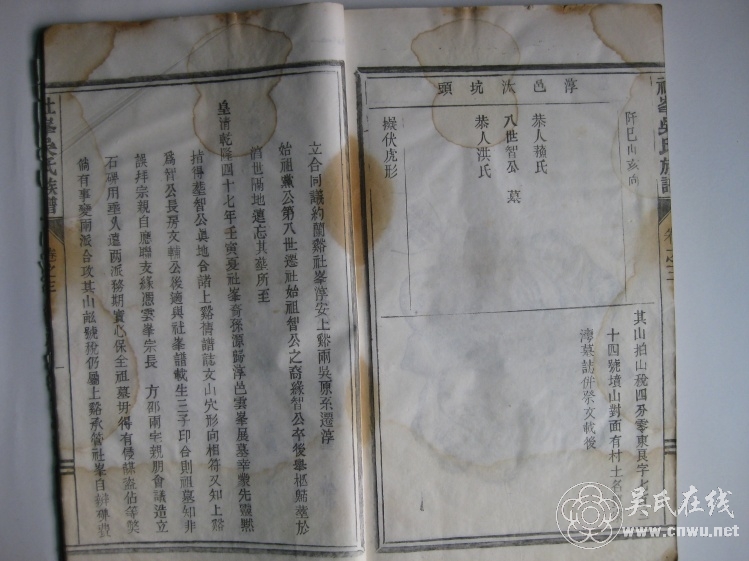 社峯吳氏族譜
卷之三
淳邑汰坑頭
阡巳山亥向
恭人豫氏
八世智公墓
恭人洪氏
擬伏虎形
其山拍山稅四分零東艮字七
十四號墳山對面有村土名
灣墓誌併祭文載後
立合同議約蘭谿社峯淳安上谿兩吳原系遷淳
始祖黨公第八世遷社始祖智公之裔緣智公卒後舉柩歸葬於
淳世隔地遠忘其葬所至
皇清乾隆四十七年壬寅夏社峯裔孫源歸淳邑雲峯展墓幸蒙先靈黙
指得葬智公眞地合諸上谿舊譜誌文山穴形向相符又知上谿
爲智公長房文輔公後適與社峯譜載生三子印合則祖墓知非
誤拜宗親自應聯支緣憑雲峯宗長 方邵兩宅親朋會議造立
石碑用垂久遠兩派務期實心保全祖墓毋得有侵謀盜佔等獘
倘有事變兩派合攻其山畝號稅仍屬上谿承管社峯自辦碑費
社峯吳氏族譜
卷之三
吴氏在线
www.cnwu.net